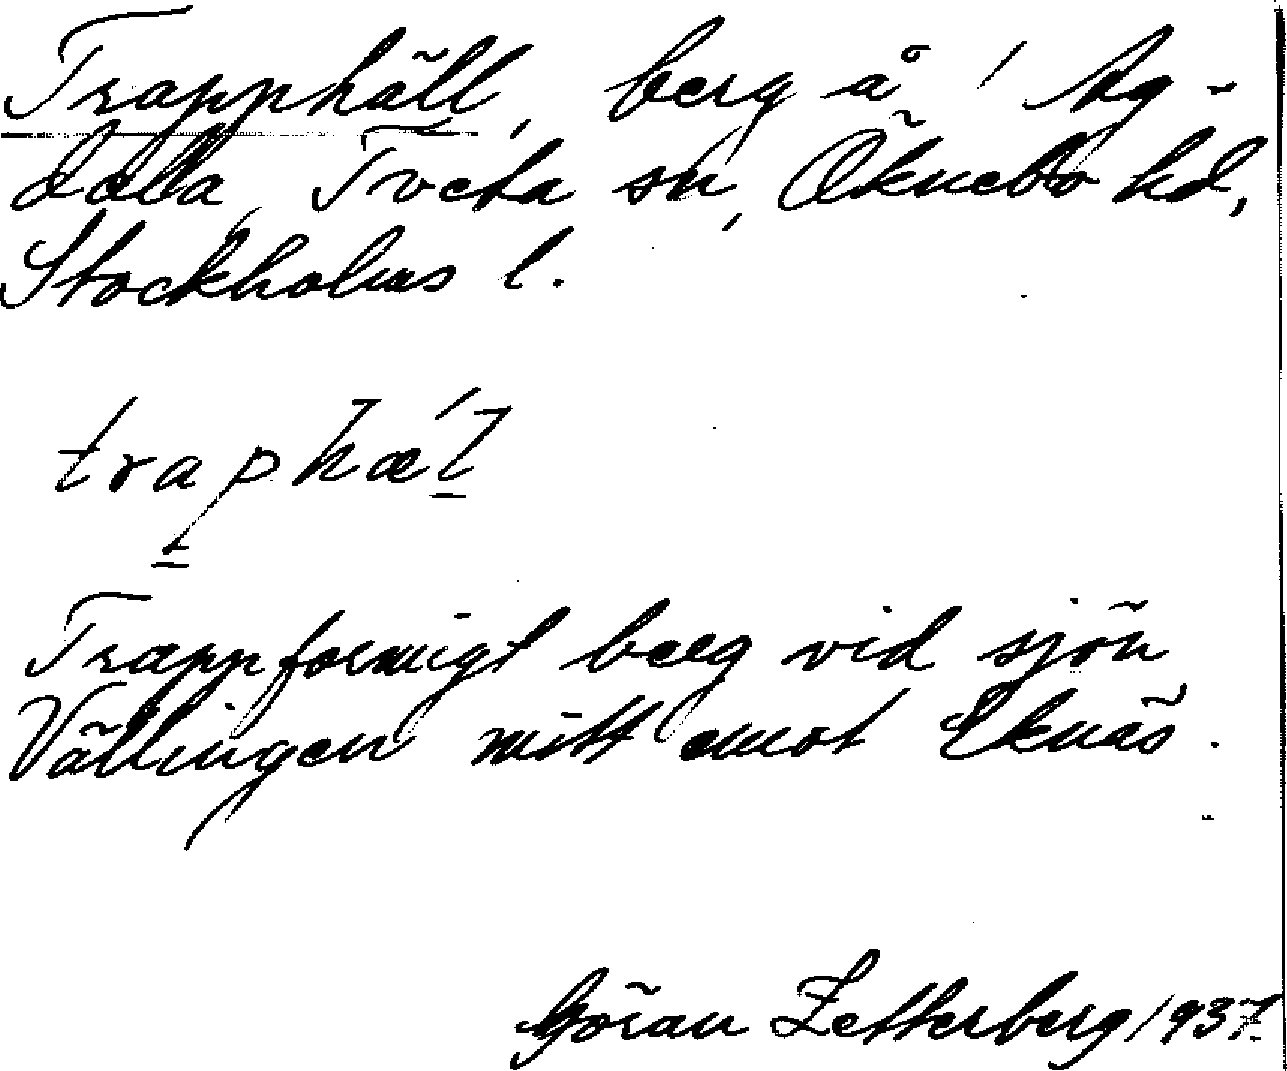 Trapphäll, berg å Ag-
dala, Tveta sn, Öknebo hd,
Stockholms l.
traphæl
Trappformigt berg vid sjön
Vällingen mitt emot Eknäs.
Göran Zetterberg 1937.